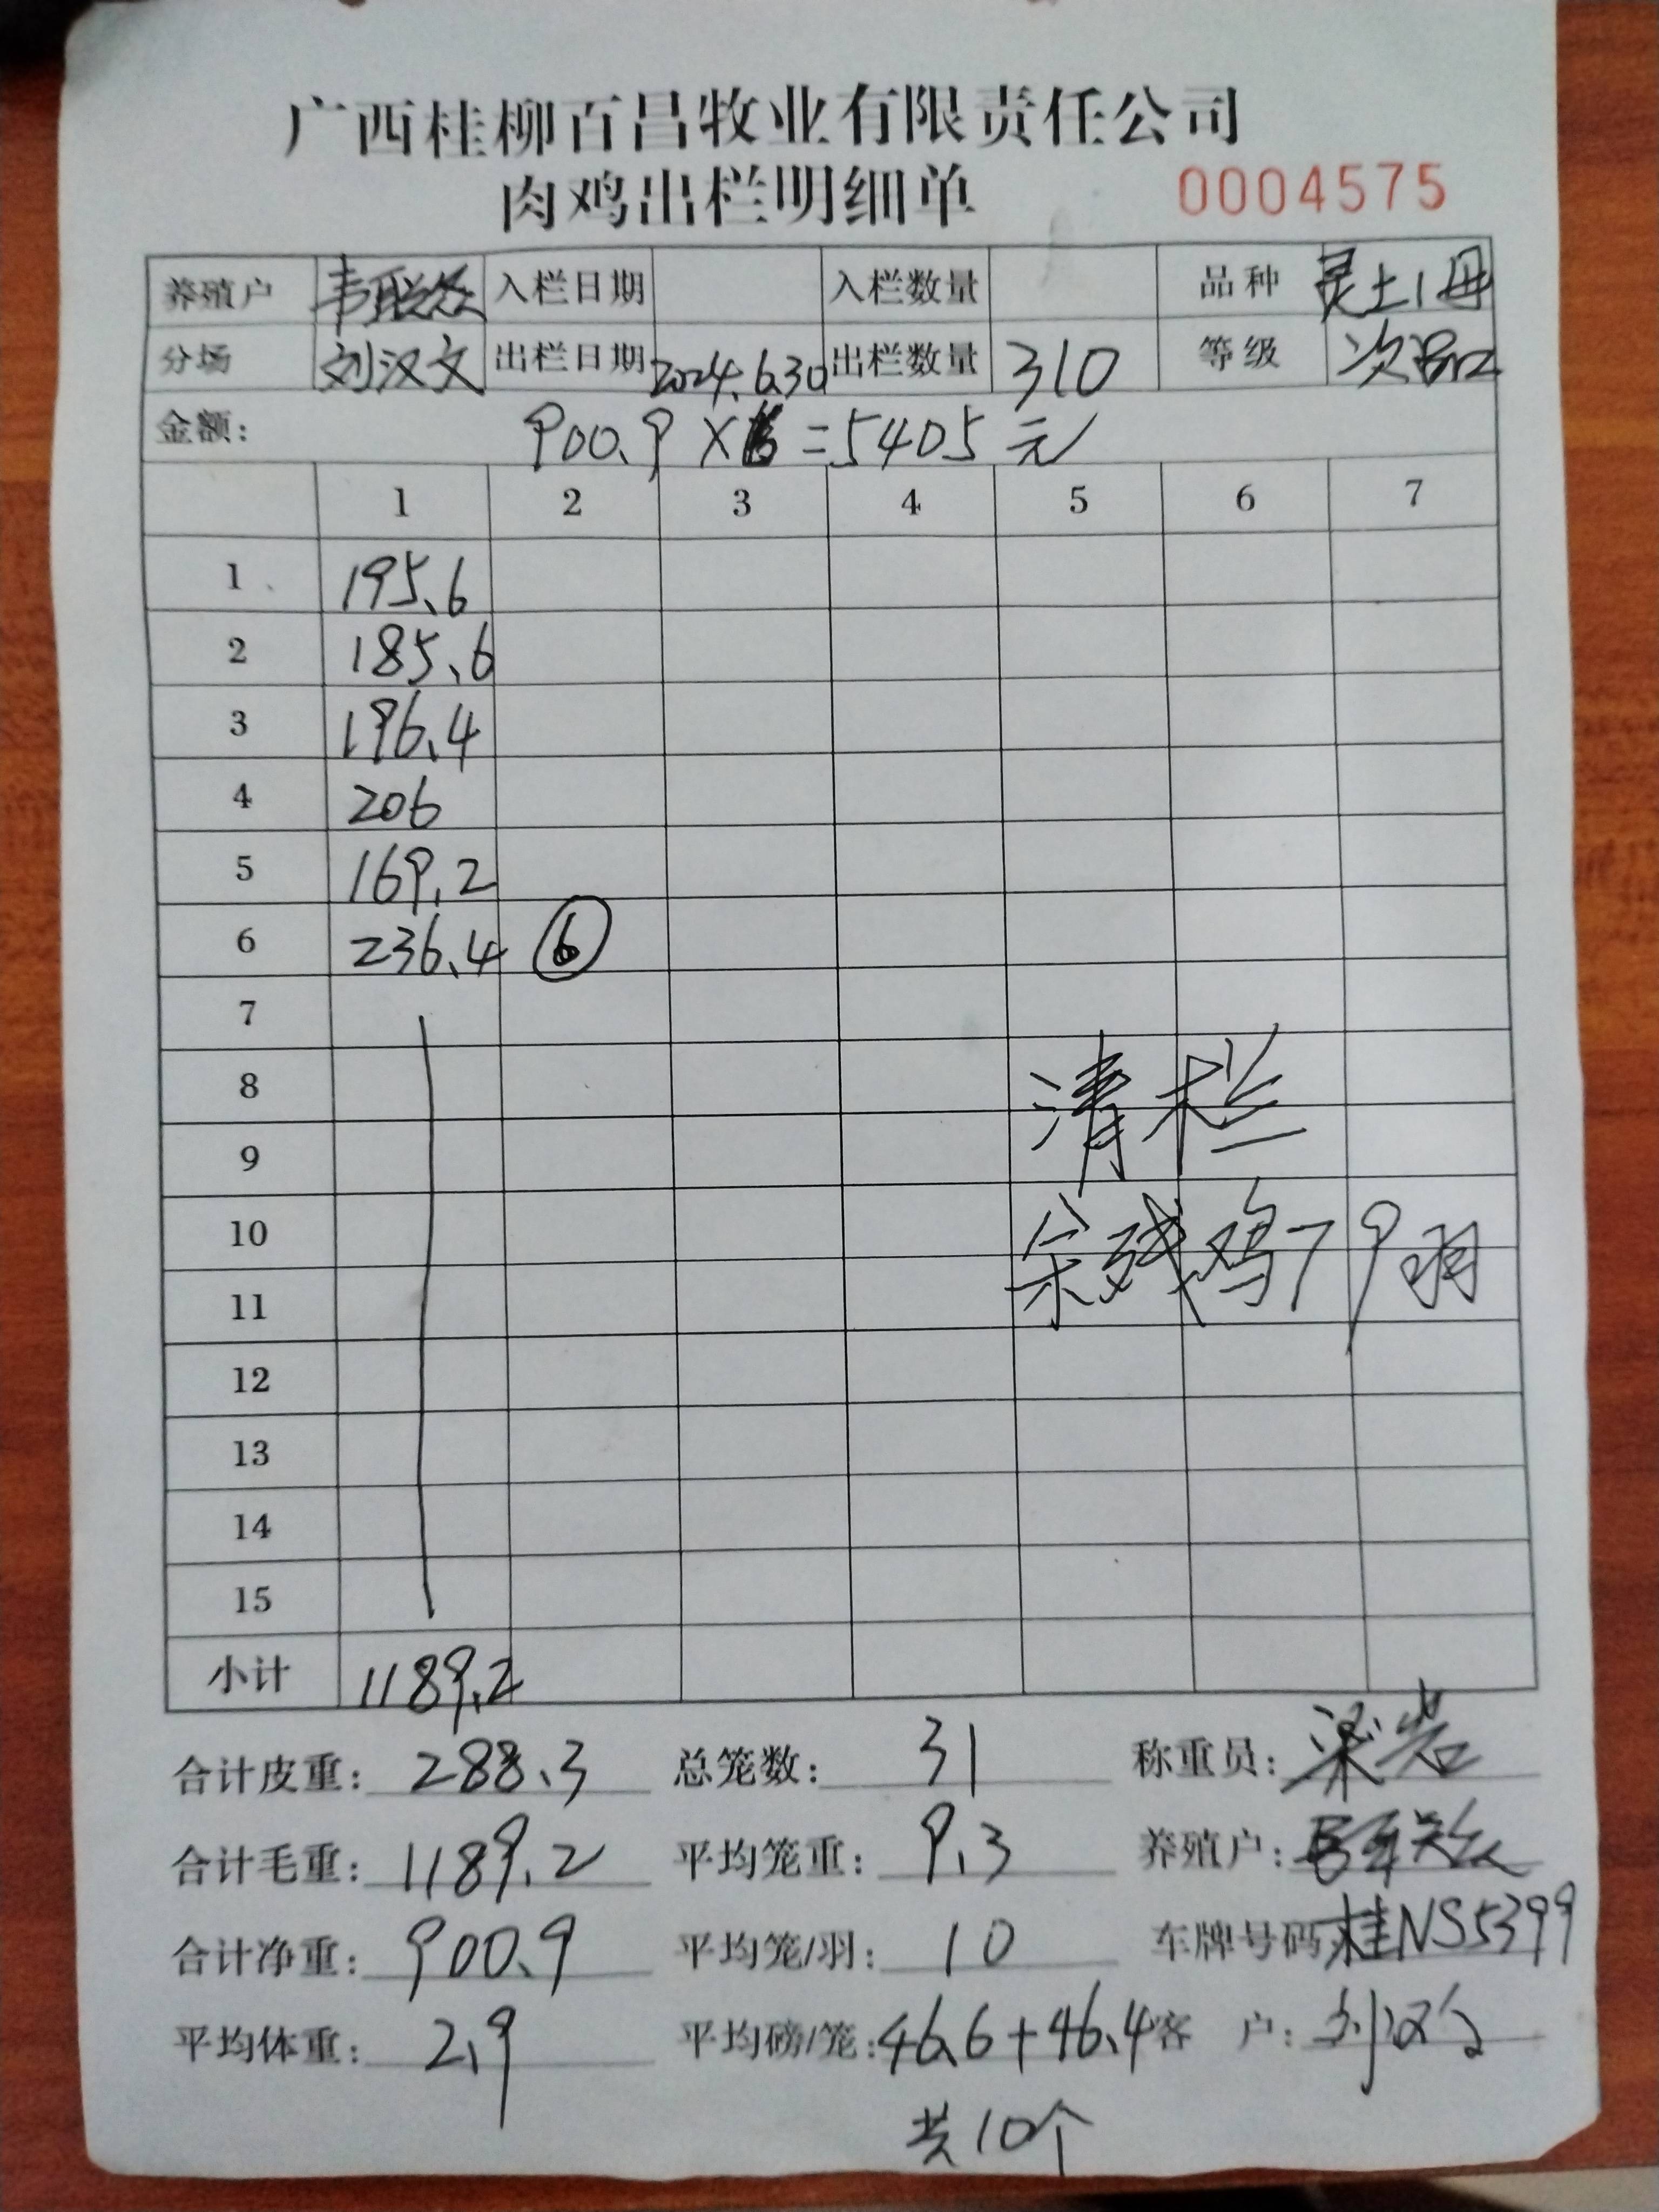 广西桂柳百昌牧业有限责任公司
肉鸡出栏明细单 0004575
养殖户 韦联众 入栏日期 入栏数量 品种 灵土1母
分场 刘汉文 出栏日期 2024.6.30 出栏数量 310 等级 次品
金额: 900.9×6=5405元
1 2 3 4 5 6 7
1 195.6
2 185.6
3 196.4
4 206
5 169.2
6 236.4 ⑥
7
8 清栏
9
10 余残鸡79羽
11
12
13
14
15
小计 1189.2
合计皮重: 288.3 总笼数: 31 称重员: 梁岩
合计毛重: 1189.2 平均笼重: 9.3 养殖户:
合计净重: 900.9 平均笼/羽: 10 车牌号码 桂NS5399
平均体重: 2.9 平均磅/笼: 46.6+46.4 客 户: 刘汉文
共10个